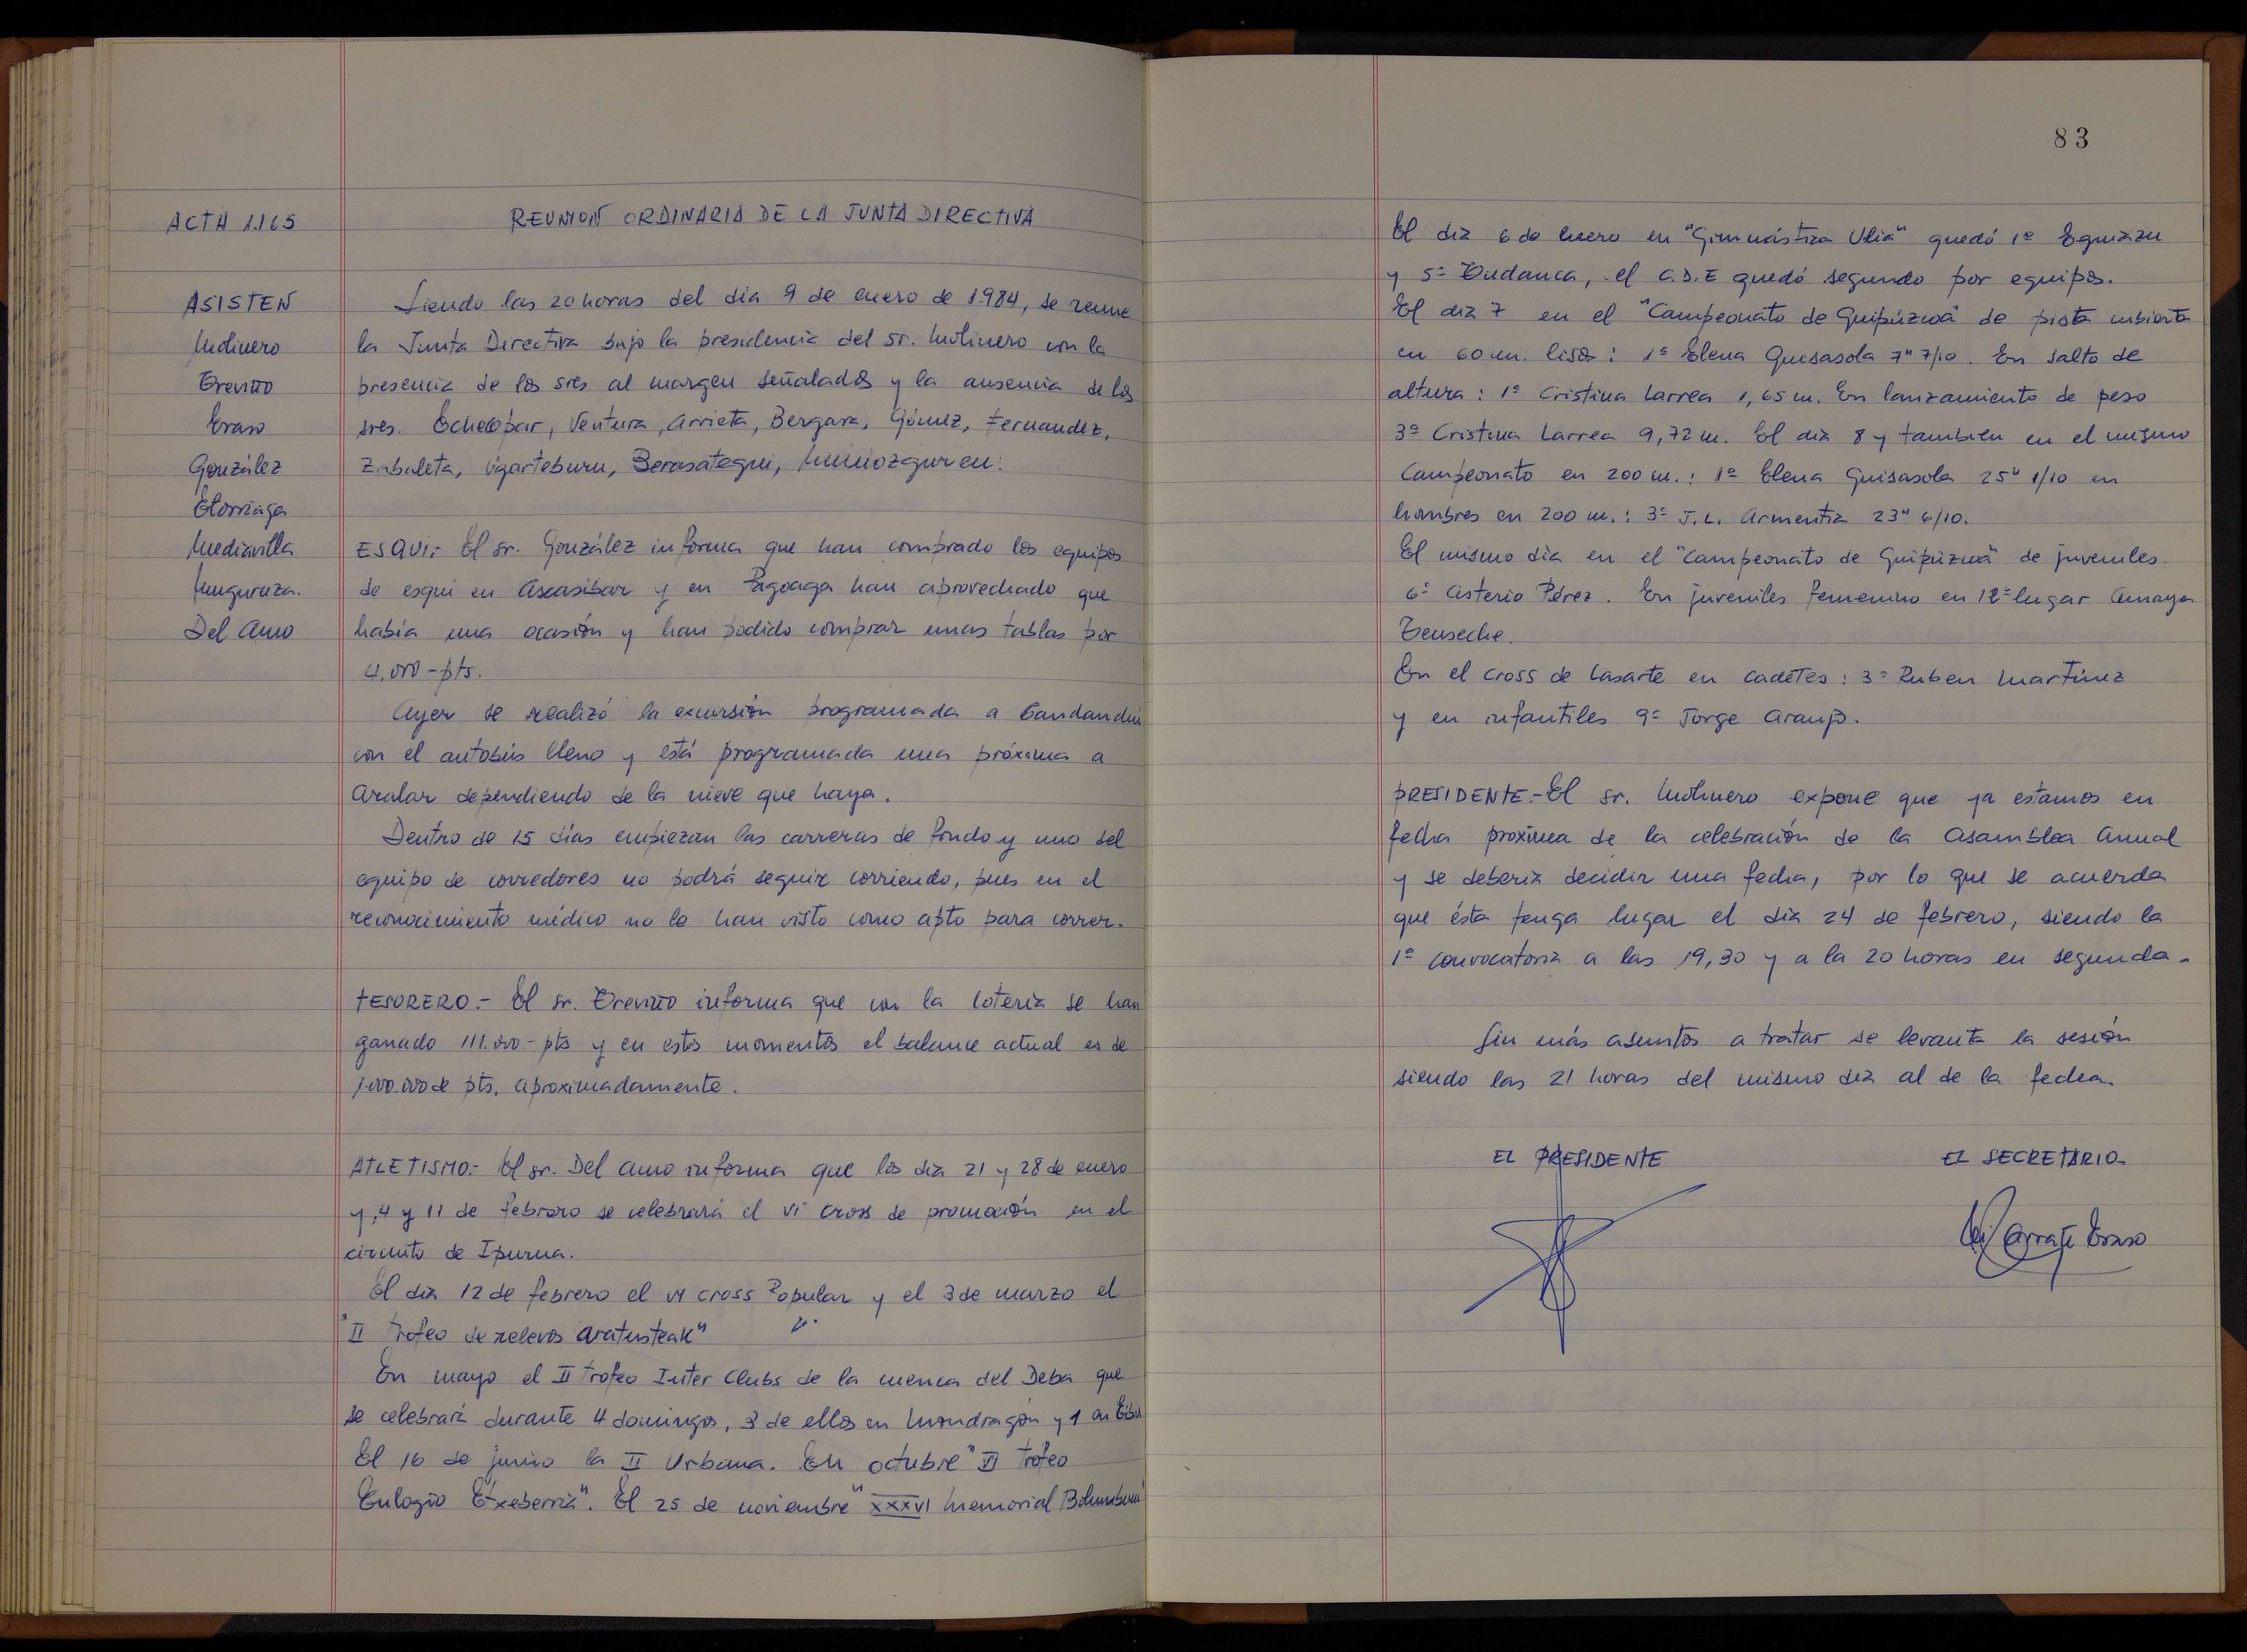 ACTA 1.165
REUNION ORDINARIA DE LA JUNTA DIRECTIVA
ASISTEN
Molinero
Treviño
Eraso
González
Etorriaga
Mediavilla
Munguruza.
Del Amo
Siendo las 20 horas del día 9 de enero de 1.984, se reune
la Junta Directiva bajo la presidencia del sr. Molinero con la
presencia de los sres al margen señalados y la ausencia de los
sres. Echeopar, Ventura, Arrieta, Bergara, Gómez, Fernandez,
Zabaleta, Ugarteburu, Berasategui, Muniozguren.
ESQUI.- El sr. González informa que han comprado los equipos
de esqui en Ascasibar y en Pagoaga han aprovechado que
había una ocasión y han podido comprar unas tablas por
4.000-pts.
Ayer se realizó la excursión programada a
con el autobús lleno y está programada una próxima a
Aralar dependiendo de la nieve que haya.
Dentro de 15 días empiezan las carreras de fondo y uno del
equipo de corredores no podrá seguir corriendo, pues en el
reconocimiento médico no lo han visto como apto para correr.
TESORERO.- El sr. Treviño informa que con la lotería se han
ganado 111.000.- pts y en estos momentos el balance actual es de
1.000.000 de pts, aproximadamente.
ATLETISMO.- El sr. Del Amo informa que los día 21 y 28 de enero
y, 4 y 11 de febrero se celebrará el VI cross de promoción en el
circuito de Ipurua.
El día 12 de febrero el VI cross Popular y el 3 de marzo el
"II trofeo de relevos Aratusteak"
En mayo el II trofeo Inter Clubs de la cuenca del Deba que
se celebrará durante 4 domingos, 3 de ellos en Mondragón y 1 en Eibar
El 16 de junio la II Urbana. En octubre "VI trofeo
Eulogio Etxeberria". El 25 de noviembre "XXXVI Memorial Bolumburu"
83
El día 6 de Enero en "Gimnástica Ulia" quedó 1º Eguiazu
y 5º Tudanca, el C.D.E quedó segundo por equipos.
El día 7 en el "Campeonato de Guipúzcoa" de pista cubierta
en 60 m. lisos: 1ª Elena Guisasola 7" 7/10. En salto de
altura: 1ª Cristina Larrea 1,65 m. En lanzamiento de peso
3ª Cristina Larrea 9,72 m. El día 8 y también en el mismo
Campeonato en 200 m.: 1ª Elena Guisasola 25" 1/10 en
hombres en 200 m.: 3º J.L. Armentia 23" 6/10.
El mismo día en el "Campeonato de Guipúzcoa" de juveniles
6º Asterio Pérez. En juveniles femenino en 12º lugar Amaya
Zeuseche.
En el cross de Lasarte en cadetes: 3º Ruben Martínez
y en infantiles 9º Jorge Araujo.
PRESIDENTE.- El sr. Molinero expone que ya estamos en
fecha proxima de la celebración de la Asamblea Anual
y se debería decidir una fecha, por lo que se acuerda
que ésta tenga lugar el día 24 de febrero, siendo la
1ª convocatoria a las 19,30 y a la 20 horas en segunda.
Sin más asuntos a tratar se levanta la sesión
siendo las 21 horas del mismo día al de la fecha.
EL PRESIDENTE
EL SECRETARIO
Eraso